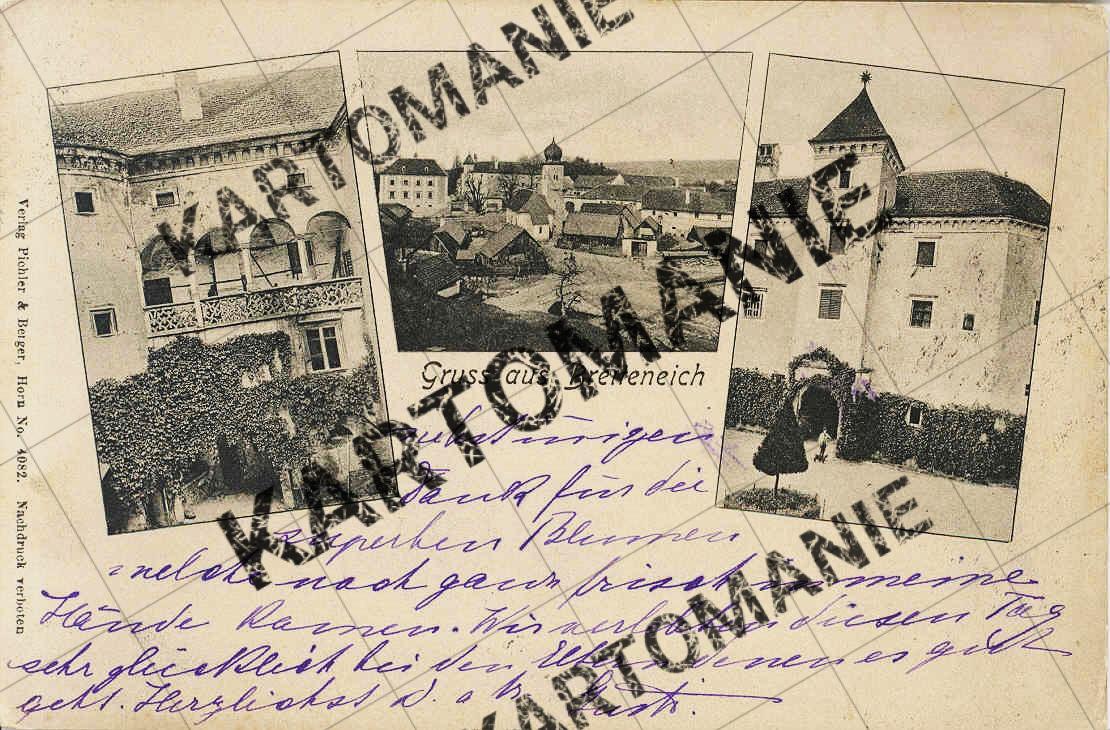 KARTOMANIE
KARTOMANIE
KARTOMANIE
KARTOMANIE
KARTOMANIE
Verlag Pichler & Berger, Horn No. 4082. Nachdruck verboten
Gruss aus Breiteneich
Dank für die
superben Blumen
welche noch ganz frisch in meine
Hände kamen. Wir verlebten diesen Tag
sehr glücklich bei den denen es gut
geht. Herzlichst